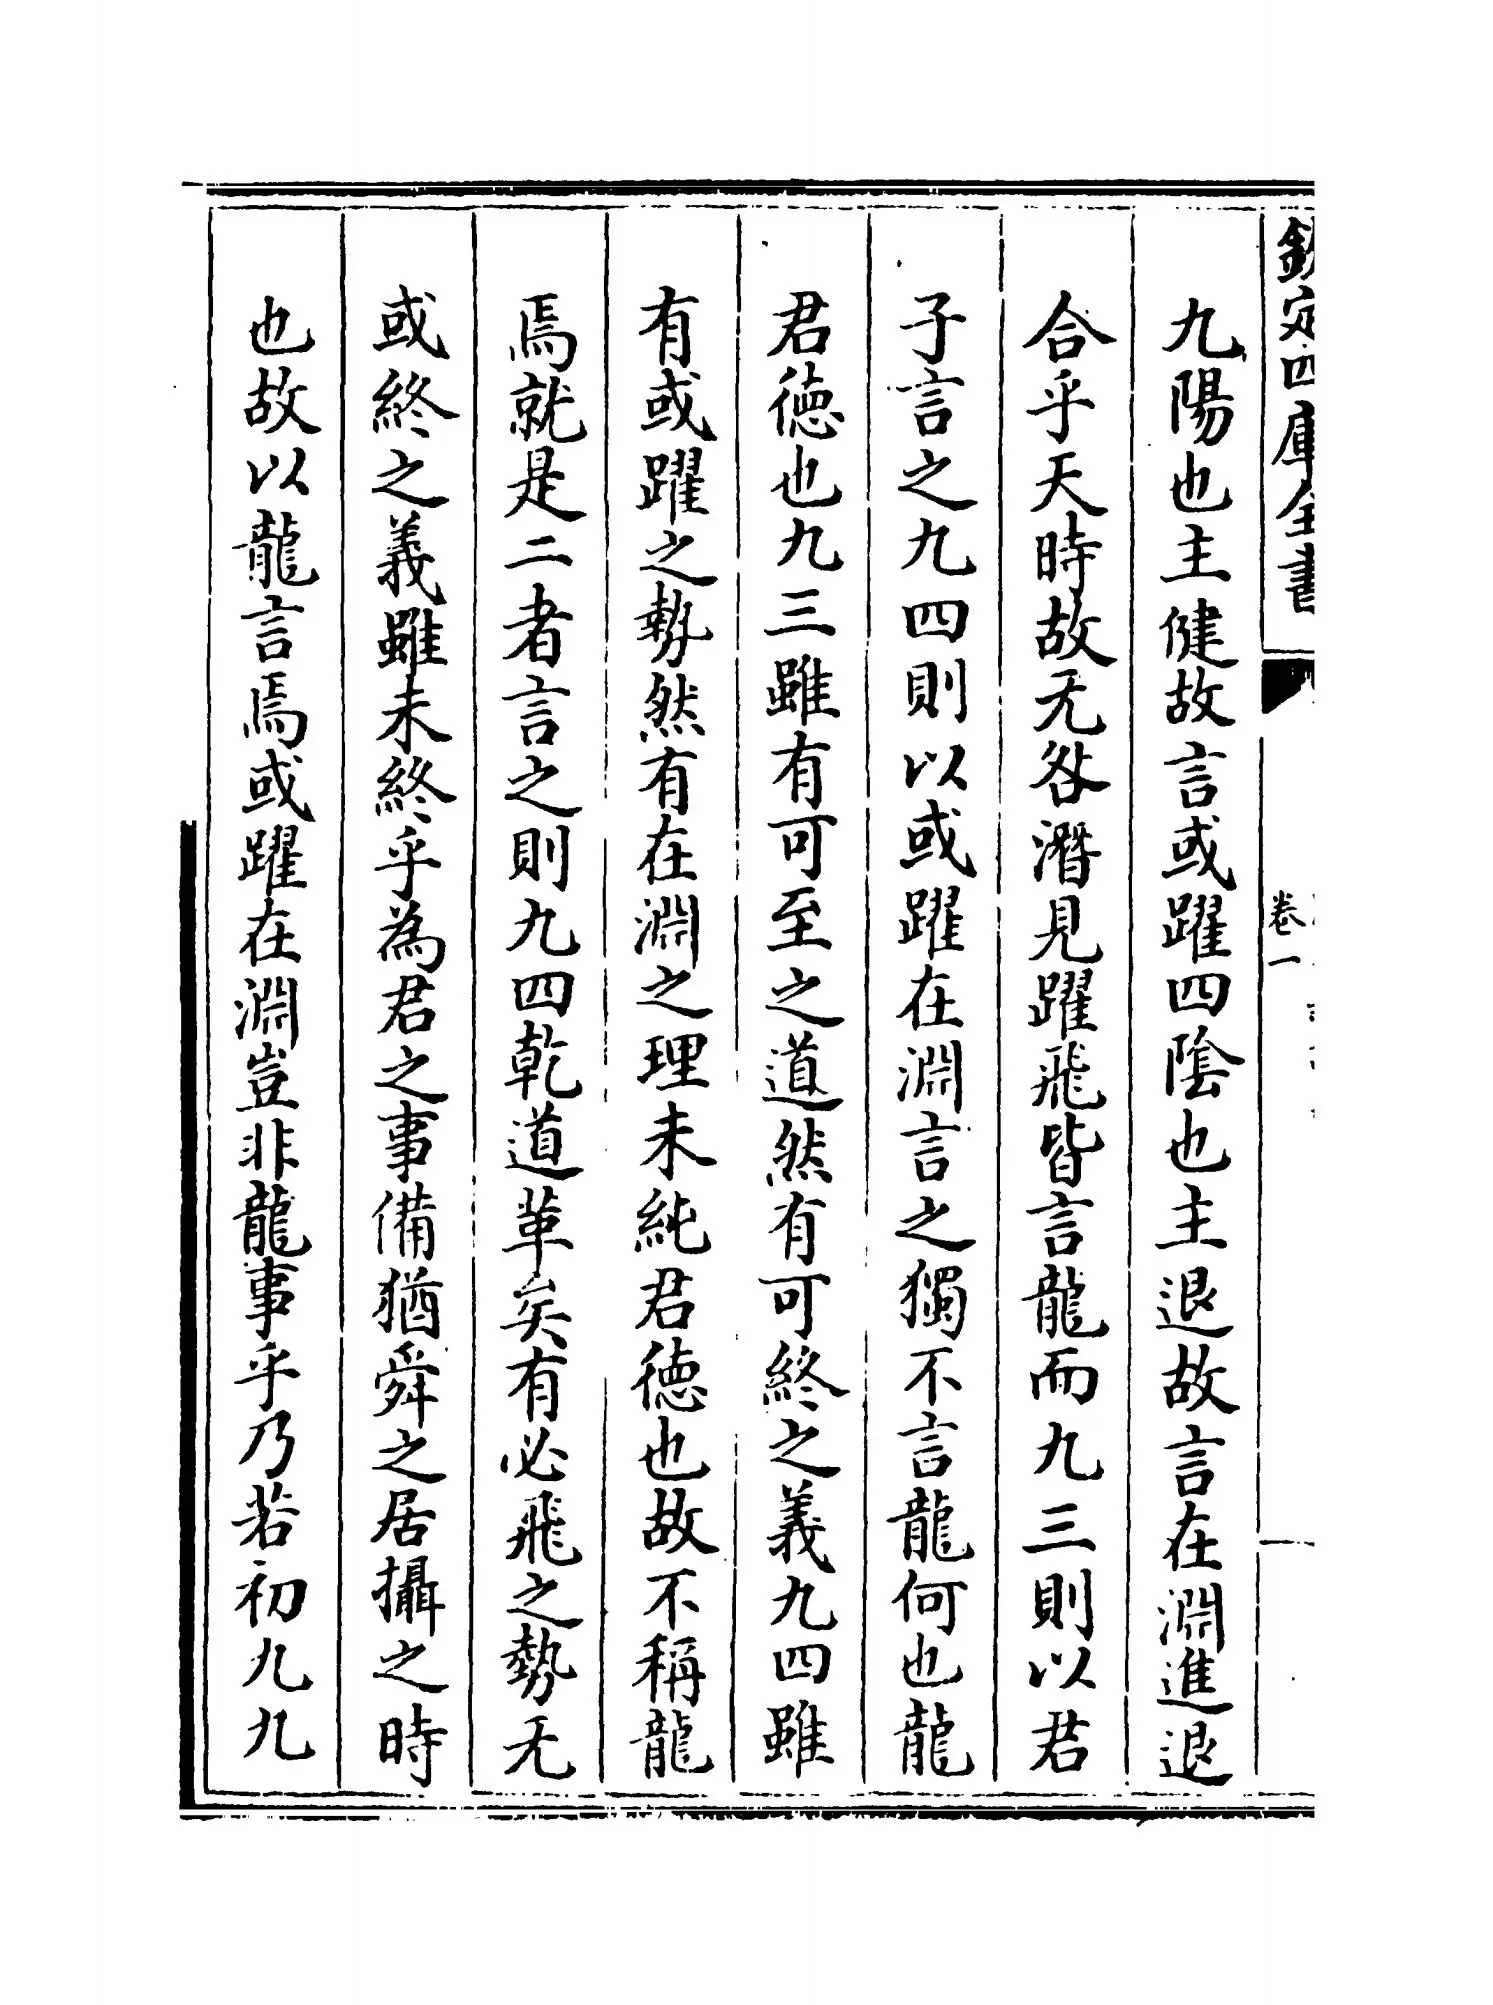 欽定四庫全書
卷一
九陽也主健故言或躍四隂也主退故言在淵進退
合乎天時故无咎潛見躍飛皆言龍而九三則以君
子言之九四則以或躍在淵言之獨不言龍何也龍
君徳也九三雖有可至之道然有可終之義九四雖
有或躍之勢然有在淵之理未純君徳也故不稱龍
焉就是二者言之則九四乾道革矣有必飛之勢无
或終之義雖未終乎為君之事備猶舜之居攝之時
也故以龍言焉或躍在淵豈非龍事乎乃若初九九